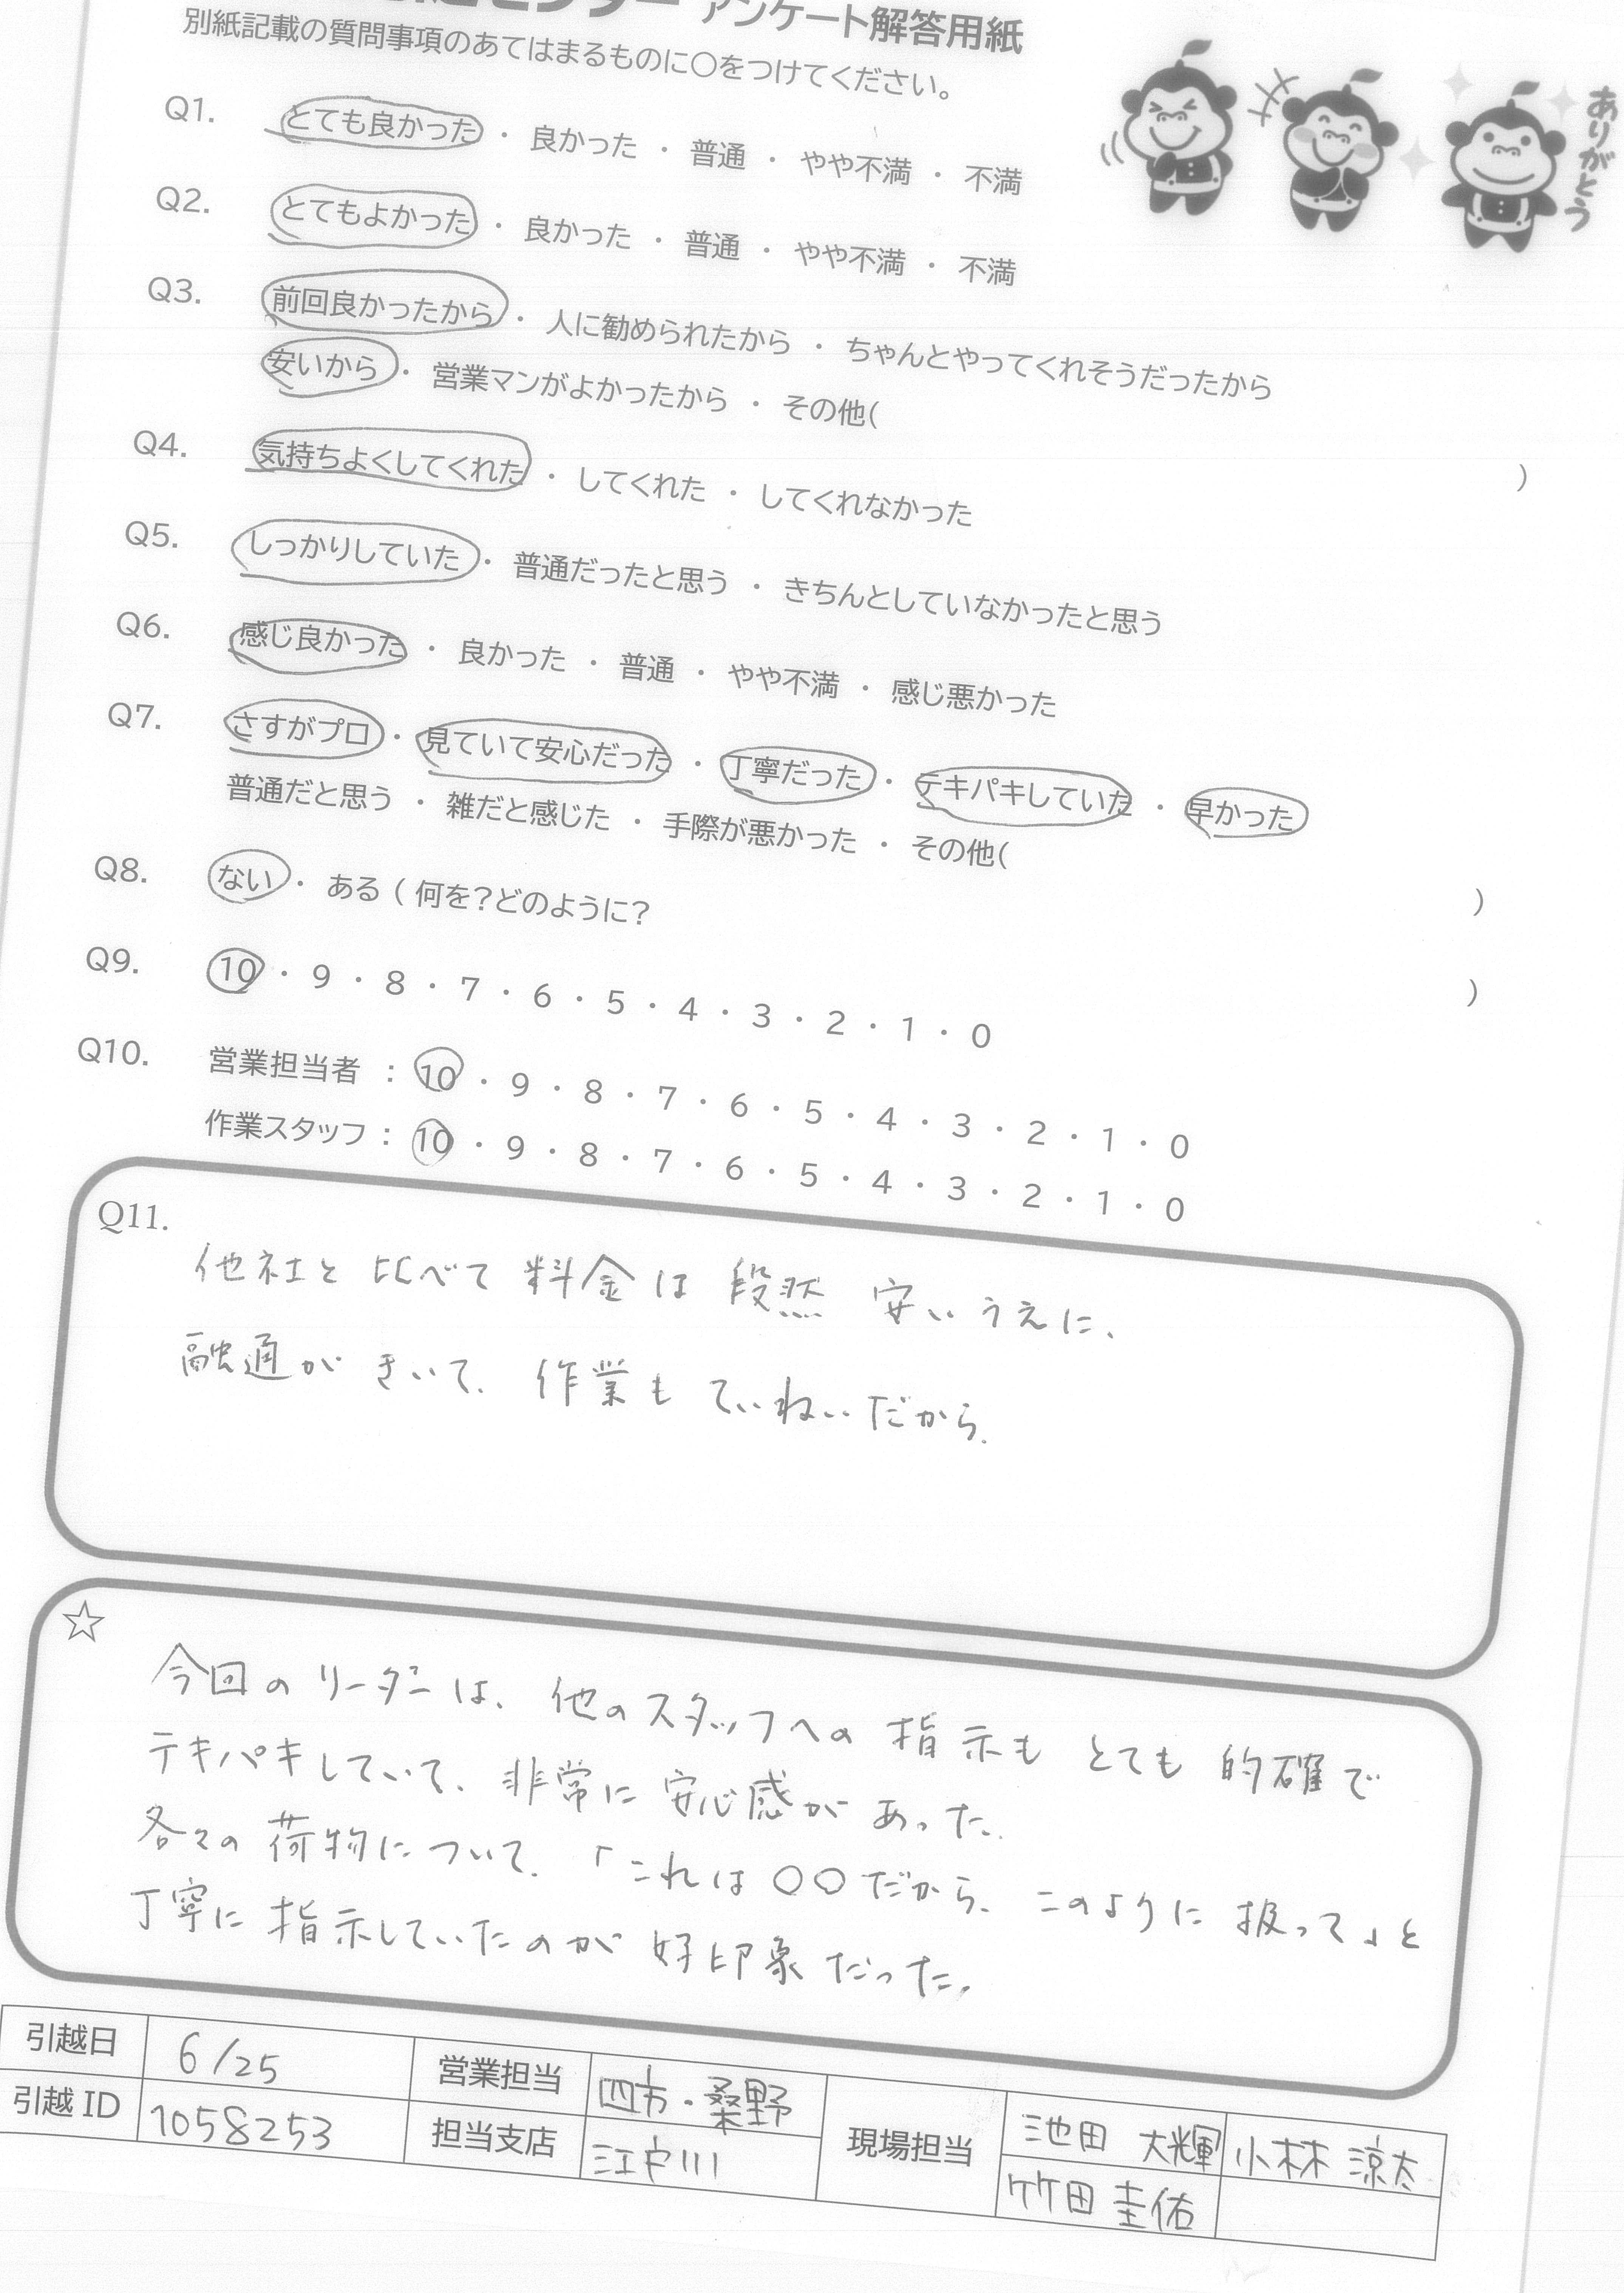 アンケート解答用紙
別紙記載の質問事項のあてはまるものに〇をつけてください。
ありがとう
Q1. とても良かった ・ 良かった ・ 普通 ・ やや不満 ・ 不満
Q2. とてもよかった ・ 良かった ・ 普通 ・ やや不満 ・ 不満
Q3. 前回良かったから ・ 人に勧められたから ・ ちゃんとやってくれそうだったから
安いから ・ 営業マンがよかったから ・ その他( )
Q4. 気持ちよくしてくれた ・ してくれた ・ してくれなかった
Q5. しっかりしていた ・ 普通だったと思う ・ きちんとしていなかったと思う
Q6. 感じ良かった ・ 良かった ・ 普通 ・ やや不満 ・ 感じ悪かった
Q7. さすがプロ ・ 見ていて安心だった ・ 丁寧だった ・ テキパキしていた ・ 早かった
普通だと思う ・ 雑だと感じた ・ 手際が悪かった ・ その他( )
Q8. ない ・ ある ( 何を?どのように? )
Q9. 10 ・ 9 ・ 8 ・ 7 ・ 6 ・ 5 ・ 4 ・ 3 ・ 2 ・ 1 ・ 0
Q10. 営業担当者 : 10 ・ 9 ・ 8 ・ 7 ・ 6 ・ 5 ・ 4 ・ 3 ・ 2 ・ 1 ・ 0
作業スタッフ : 10 ・ 9 ・ 8 ・ 7 ・ 6 ・ 5 ・ 4 ・ 3 ・ 2 ・ 1 ・ 0
Q11.
他社と比べて料金は段然安いうえに、
融通がきいて、作業もていねいだから。
☆
今回のリーダーは、他のスタッフへの指示もとても的確で
テキパキしていて、非常に安心感があった。
各々の荷物について、「これは〇〇だから、このように扱って」と
丁寧に指示していたのが好印象だった。
引越日 6/25 営業担当 四方・桑野 現場担当 池田 大輝 小林 涼太
引越 ID 1058253 担当支店 江戸川 竹田 圭佑